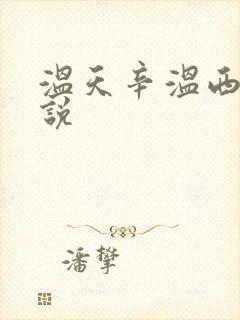 温天辛温西
說
潘攀